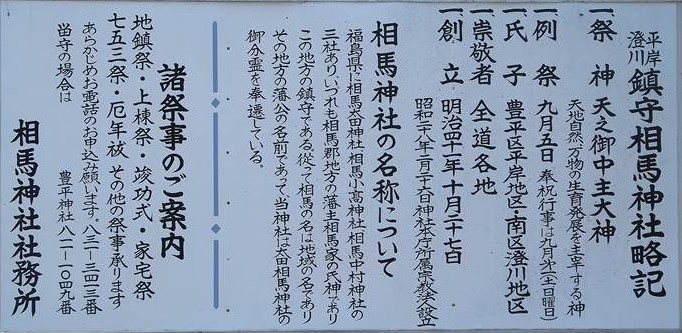 平岸
澄川 鎮守相馬神社略記
一、祭神 天之御中主大神
天地自然万物の生育発展を主宰する神
一、例祭 九月五日 奉祝行事は九月第一(土日曜日)
一、氏子 豊平区平岸地区・南区澄川地区
一、崇敬者 全道各地
一、創立 明治四十一年十月二十七日
昭和二十八年二月二十六日神社本庁所属宗教法人設立
相馬神社の名称について
福島県に相馬太田神社相馬小高神社相馬中村神社の
三社あり、いづれも相馬郡地方の藩主相馬家の氏神であり
この地方の鎮守である。従って相馬の名は地域の名であり
その地方の藩公の名前であって、当神社は太田相馬神社の
御分霊を奉遷している。
諸祭事のご案内
地鎮祭・上棟祭・竣功式・家宅祭
七五三祭・厄年祓 その他の祭事承ります
あらかじめお電話のお申込み願います。八三一-三四一三番
留守の場合は 豊平神社 八一一-一〇四九番
相馬神社社務所